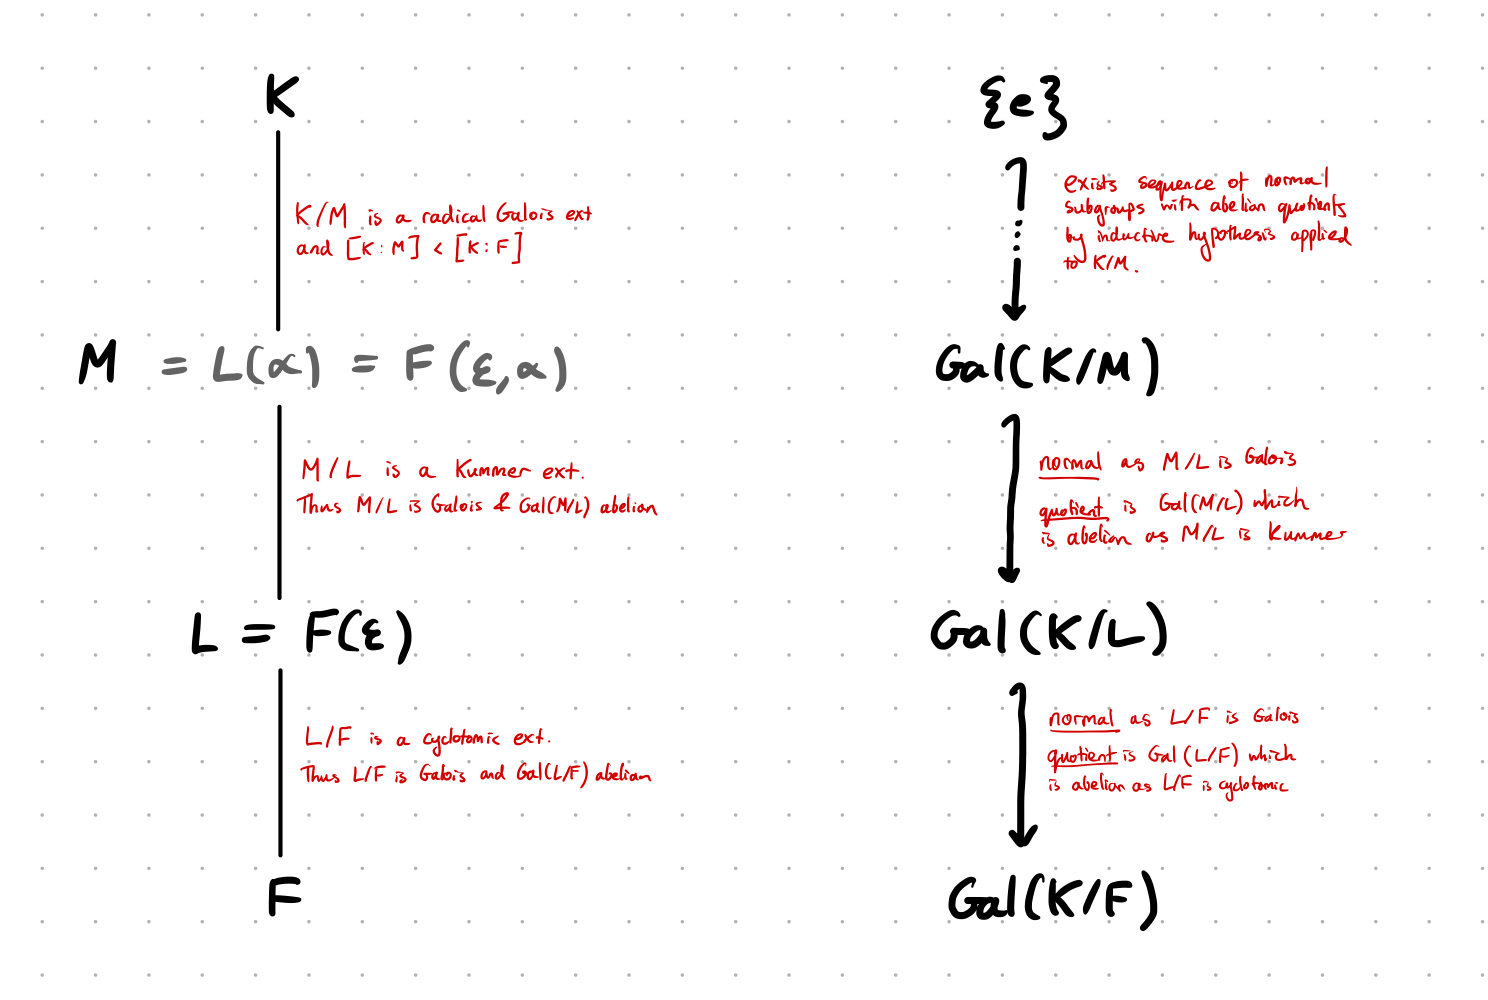 K
K/M is a radical Galois ext
and [K:M] < [K:F]
M = L(α) = F(ξ,α)
M/L is a Kummer ext.
Thus M/L is Galois & Gal(M/L) abelian
L = F(ξ)
L/F is a cyclotomic ext.
Thus L/F is Galois and Gal(L/F) abelian
F
{e}
exists sequence of normal
subgroups with abelian quotients
by inductive hypothesis applied
to K/M.
Gal(K/M)
normal as M/L is Galois
quotient is Gal(M/L) which
is abelian as M/L is Kummer
Gal(K/L)
normal as L/F is Galois
quotient is Gal(L/F) which
is abelian as L/F is cyclotomic
Gal(K/F)